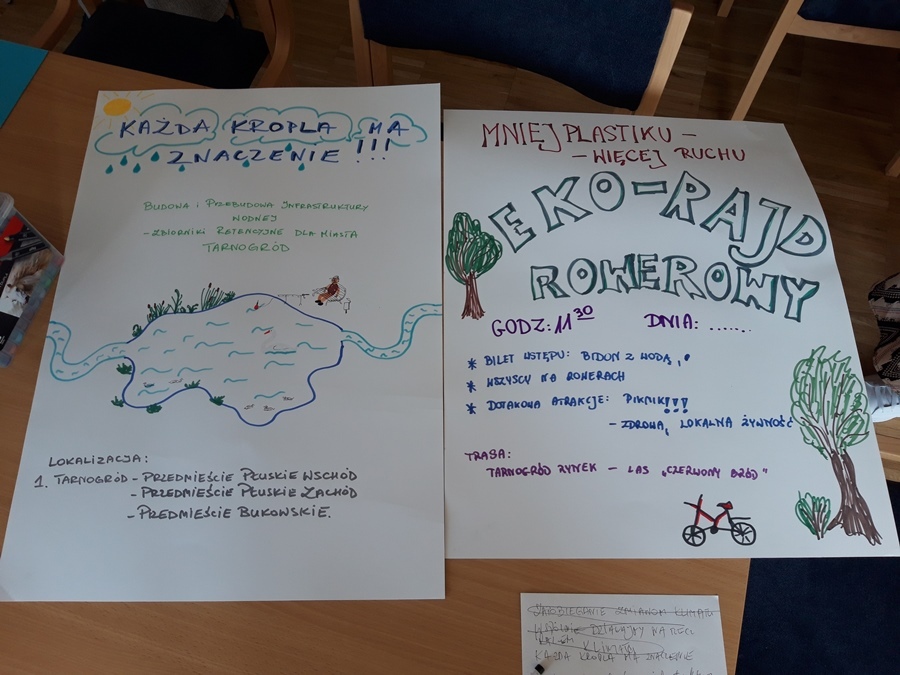 KAŻDA KROPLA MA
ZNACZENIE !!!
BUDOWA i PRZEBUDOWA INFRASTRUKTURY
WODNEJ
-ZBIORNIKI RETENCYJNE DLA MIASTA
TARNOGRÓD
LOKALIZACJA:
1. TARNOGRÓD - PRZEDMIEŚCIE PŁUSKIE WSCHÓD
- PRZEDMIEŚCIE PŁUSKIE ZACHÓD
- PREDMIEŚCIE BUKOWSKIE.
MNIEJ PLASTIKU -
- WIĘCEJ RUCHU
EKO-RAJD
ROWEROWY
GODZ: 11 30 DNIA: .......
* BILET WSTĘPU: BIDON Z WODĄ,!
* WSZYSCY NA ROWERACH
* DOTAKOWA ATRAKCJE: PIKNIK!!!
- ZDROWA, LOKALNA ŻYWNOŚĆ
TRASA:
TARNOGRÓD RYNEK - LAS „CZERWONY BRÓD"
ZAPOBIEGANIE ZMIANOM KLIMATU
DZIAŁAJMY NA RZECZ
KLIMATU
KAŻDA KROPLA MA ZNACZENIE